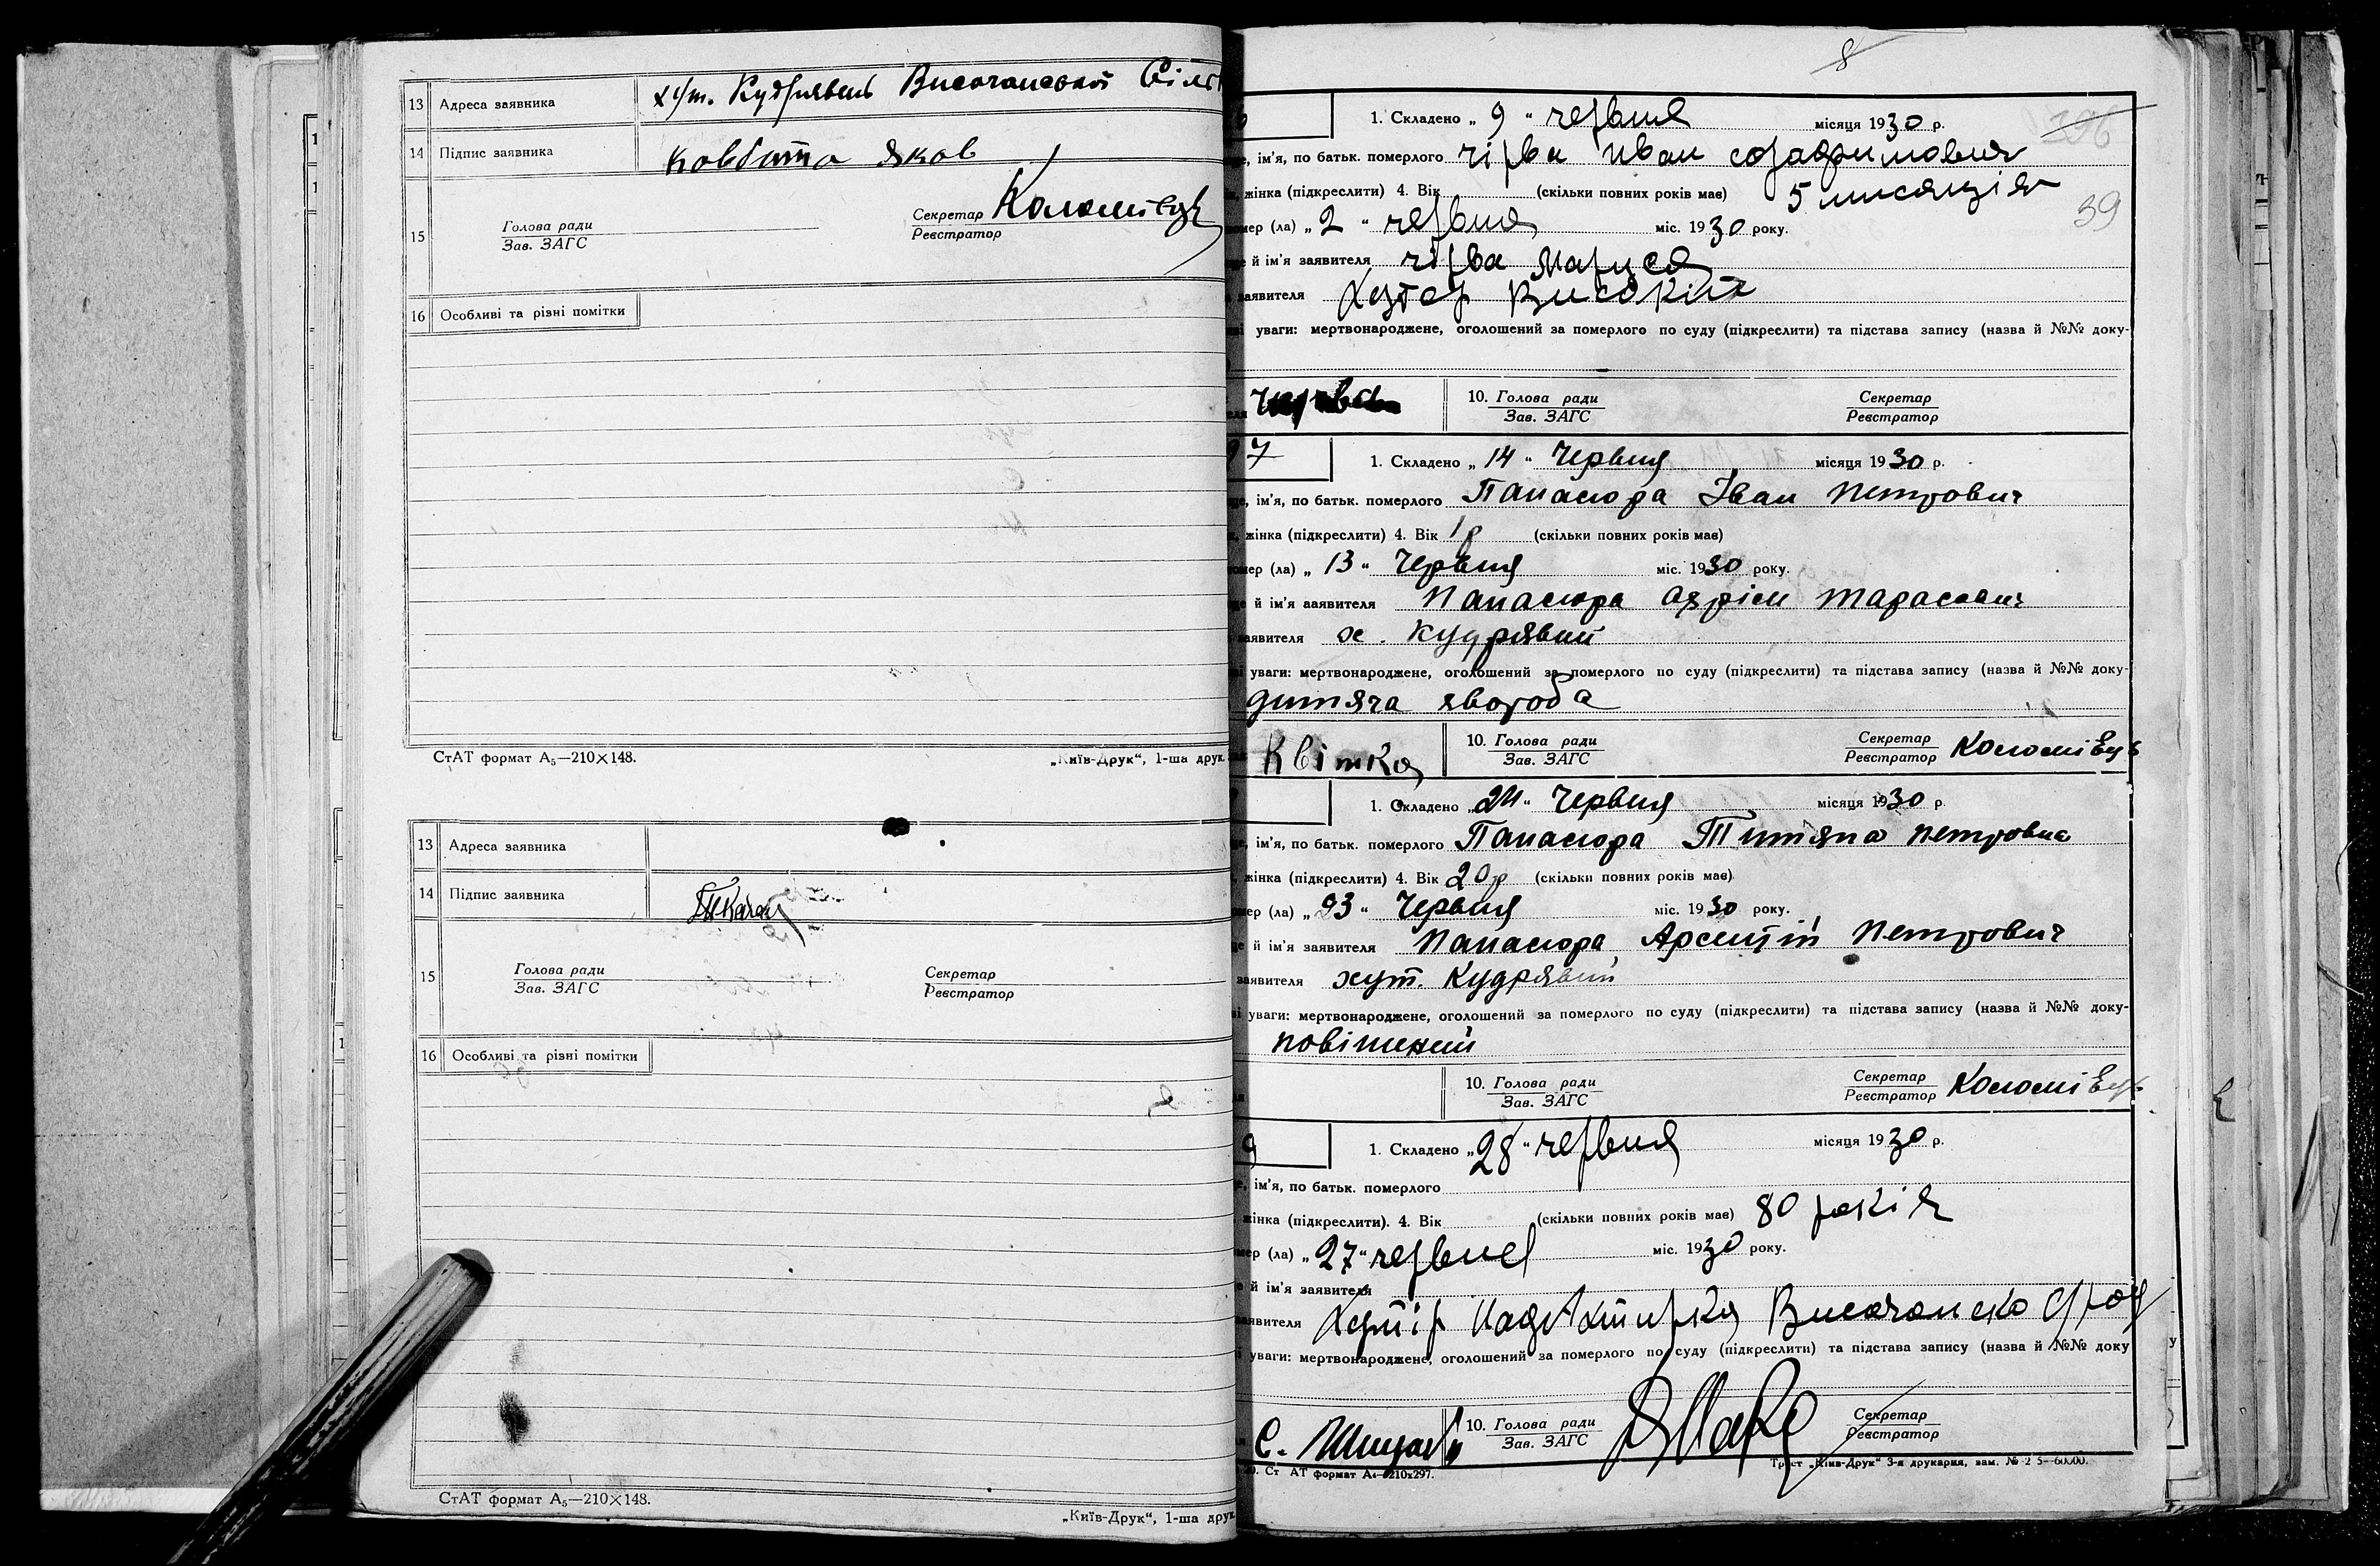 13 Адреса заявника хут. Кудрявець Височанської Сільс
14 Підпис заявника Ковбита Яков
15 Голова ради Зав. ЗАГС Секретар Реєстратор Коломієць
16 Особливі та різні помітки
СтАТ формат А₅—210×148. „Київ-Друк“, 1-ша друк.
13 Адреса заявника
14 Підпис заявника Ткачен
15 Голова ради Зав. ЗАГС Секретар Реєстратор
16 Особливі та різні помітки
СтАТ формат А₅—210×148.
„Київ-Друк“, 1-ша друк
8
6 1. Складено „ 9 “ червня місяця 1930 р. 396
ім'я, по батьк. померлого Чірва Иван
жінка (підкреслити) 4. Вік (скільки повних років має) 5 мисяція
39
мер (ла) „ 2 “ червня міс. 1930 року.
й ім'я заявителя Чірва Маруся
заявителя Хутор Високий
уваги: мертвонароджене, оголошений за померлого по суду (підкреслити) та підстава запису (назва й №№ доку-
Чирва 10. Голова ради Зав. ЗАГС Секретар Реєстратор
97 1. Складено „ 14 “ Червня місяця 1930 р.
ім'я, по батьк. померлого Панасюра Іван Петрович
жінка (підкреслити) 4. Вік 1 р (скільки повних років має)
омер (ла) „ 13 “ Червня міс. 1930 року.
й ім'я заявителя Панасюра Тарасович
заявителя х. Кудрявий
уваги: мертвонароджене, оголошений за померлого по суду (підкреслити) та підстава запису (назва й №№ доку-
дитяча хвороба
Квітка 10. Голова ради Зав. ЗАГС Секретар Реєстратор Коломієць
1. Складено „ 24 “ Червня місяця 1930 р.
ім'я, по батьк. померлого Панасюра Титяна Петровна
жінка (підкреслити) 4. Вік 20 р (скільки повних років має)
мер (ла) „ 23 “ Червня міс. 1930 року.
й ім'я заявителя Панасюра Арсентій Петрович
заявителя хут. Кудрявий
уваги: мертвонароджене, оголошений за померлого по суду (підкреслити) та підстава запису (назва й №№ доку-
повішений
10. Голова ради Зав. ЗАГС Секретар Реєстратор Коломієць
9 1. Складено „ 28 “ червня місяця 1930 р.
ім'я, по батьк. померлого
жінка (підкреслити). 4. Вік (скільки повних років має) 80 років
мер (ла) „ 27 “ червня міс. 1930 року.
й ім'я заявителя
заявителя Хутір Височанско
уваги: мертвонароджене, оголошений за померлого по суду (підкреслити) та підстава запису (назва й №№ доку
С. 10. Голова ради Зав. ЗАГС Секретар Реєстратор
Ст АТ формат А₄—210x297. Трест „Київ-Друк“ 3-я друкарня, зам. №